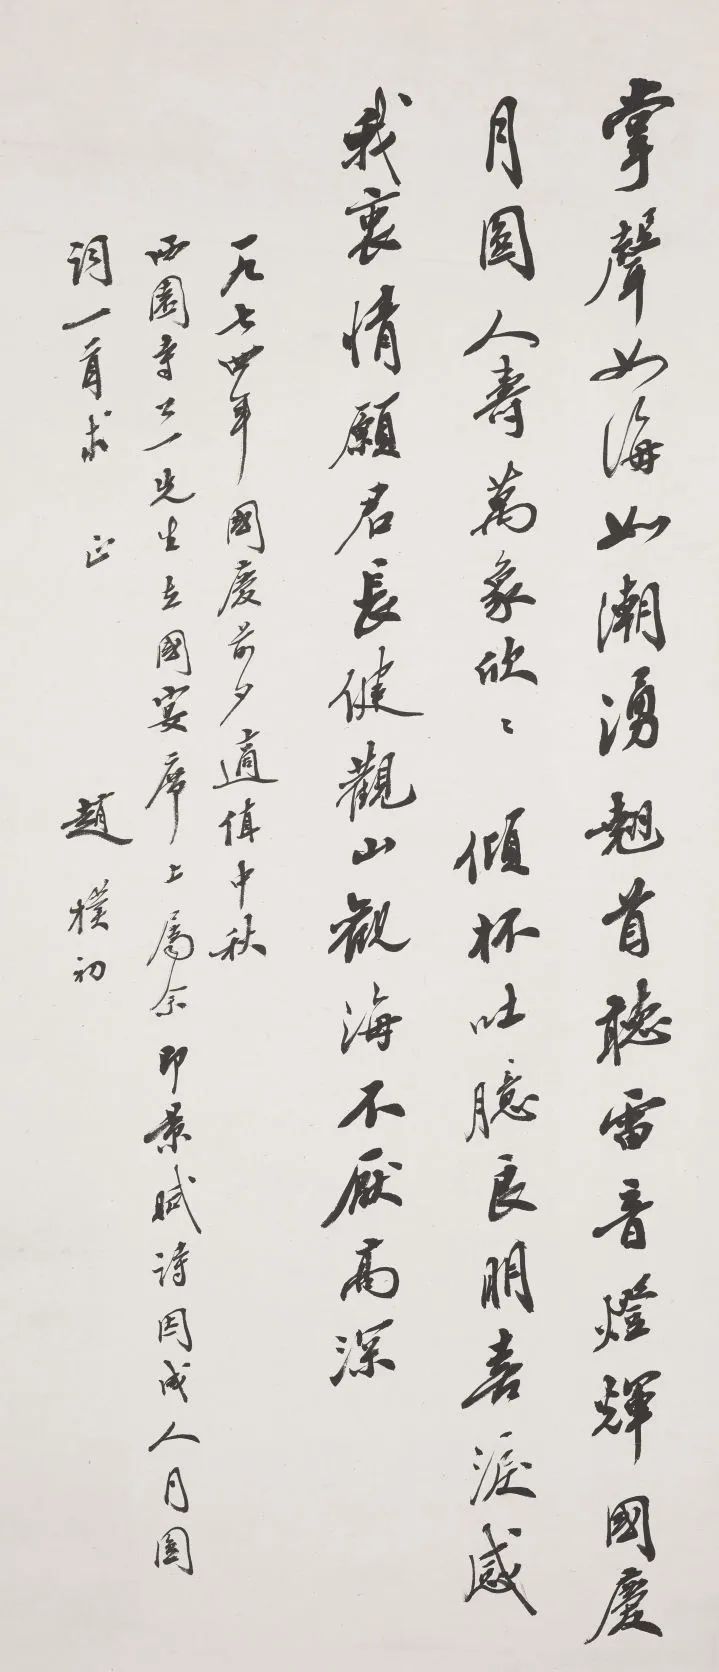 掌聲如海如潮湧翹首聽雷音燈輝國慶
月圓人壽萬象欣〻 傾杯吐臆良朋喜淚感
我衷情願君長健觀山觀海不厭高深
一九七四年國慶前夕適值中秋
西園寺公一先生在國宴席上屬余即景賦詩因成人月圓
詞一首求 正 趙樸初